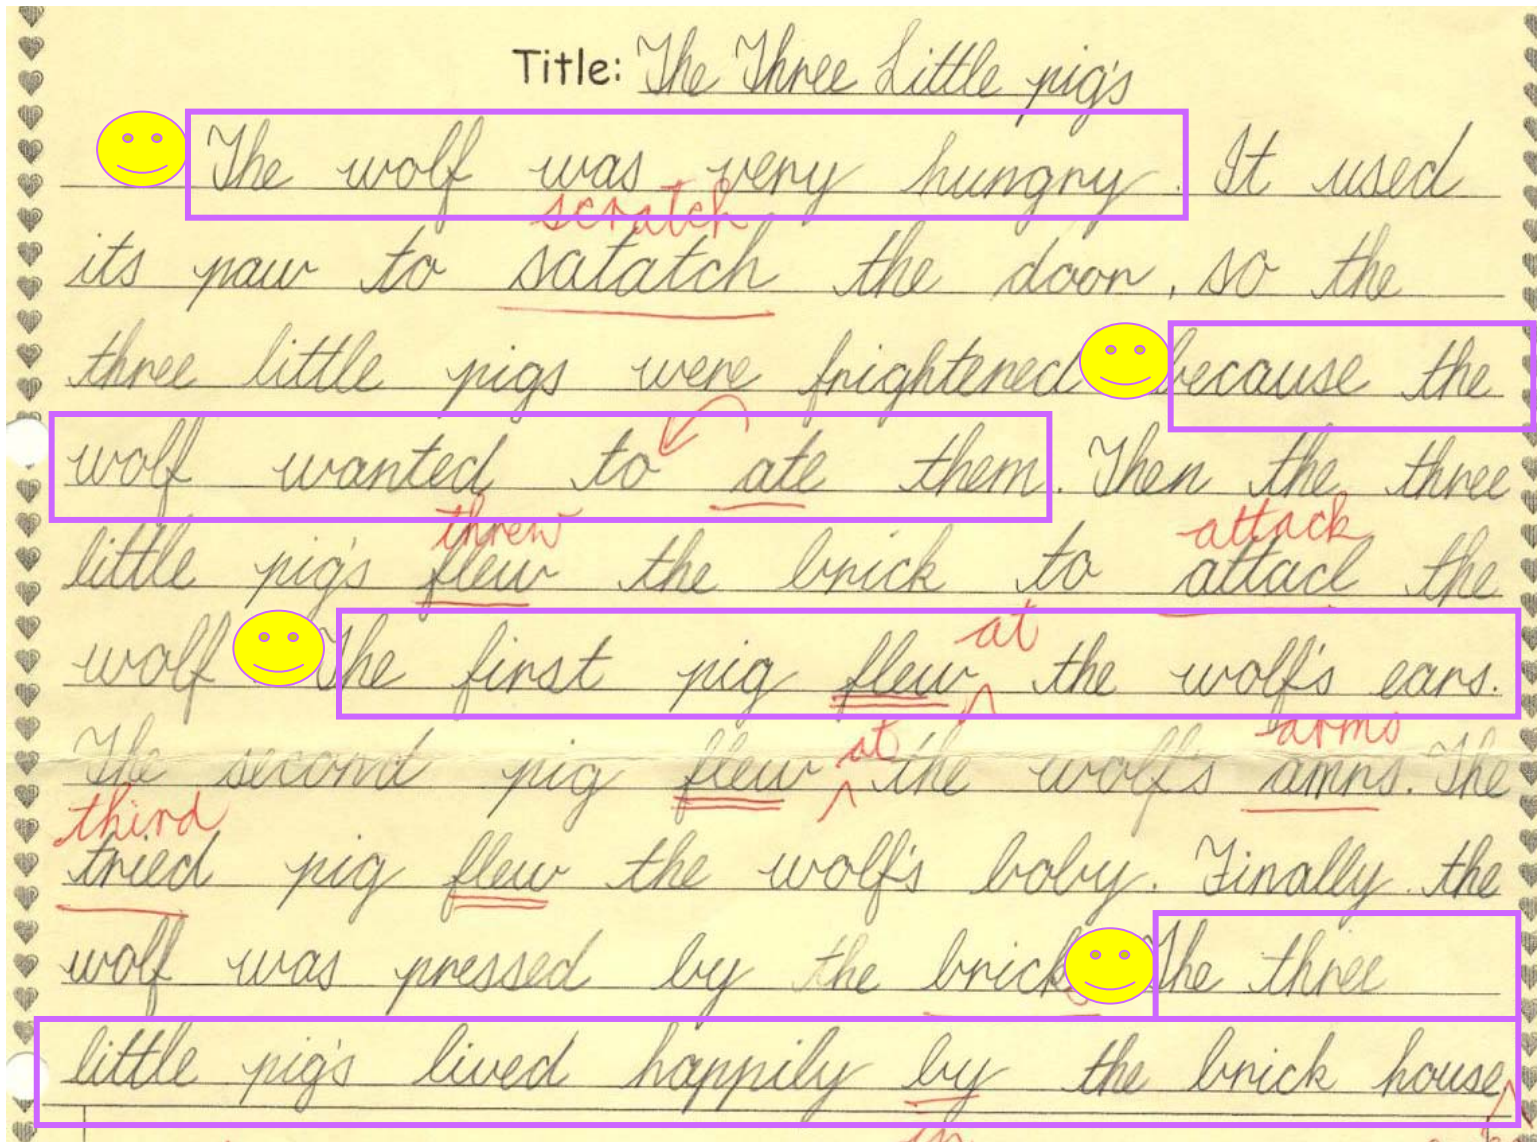 Title: The Three Little pig's
The wolf was very hungry. It used
scratch
its paw to satatch the door, so the
three little pigs were frightened because the
wolf wanted to ate them. Then the three
threw attack
little pig's flew the brick to attacl the
at
wolf. The first pig flew the wolf's ears.
at arms
The second pig flew the wolf's amns. The
third
tried pig flew the wolf's boby. Finally the
wolf was pressed by the brick The three
little pig's lived happily by the brick house
in